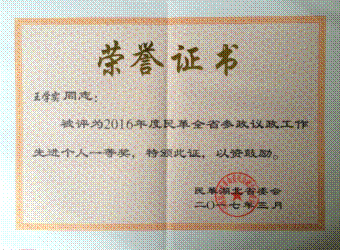 荣誉证书
王学实同志:
被评为2016年度民革全省参政议政工作
先进个人一等奖,特颁此证,以资鼓励。
民革湖北省委会
二〇一七年三月